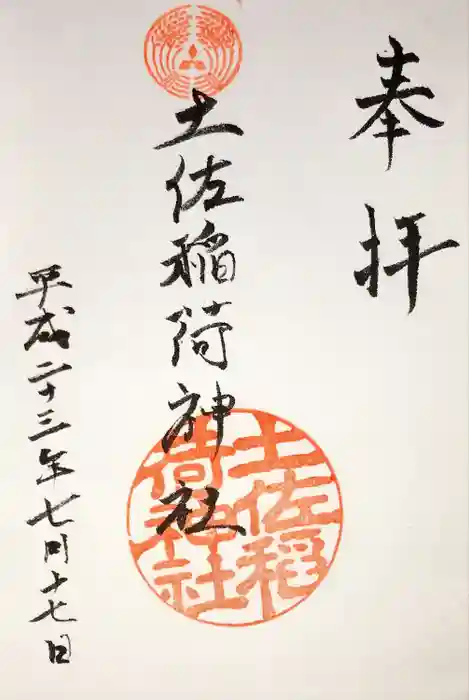 奉拝
土佐稲荷神社
土佐稲
荷神社
平成二十三年七月十七日